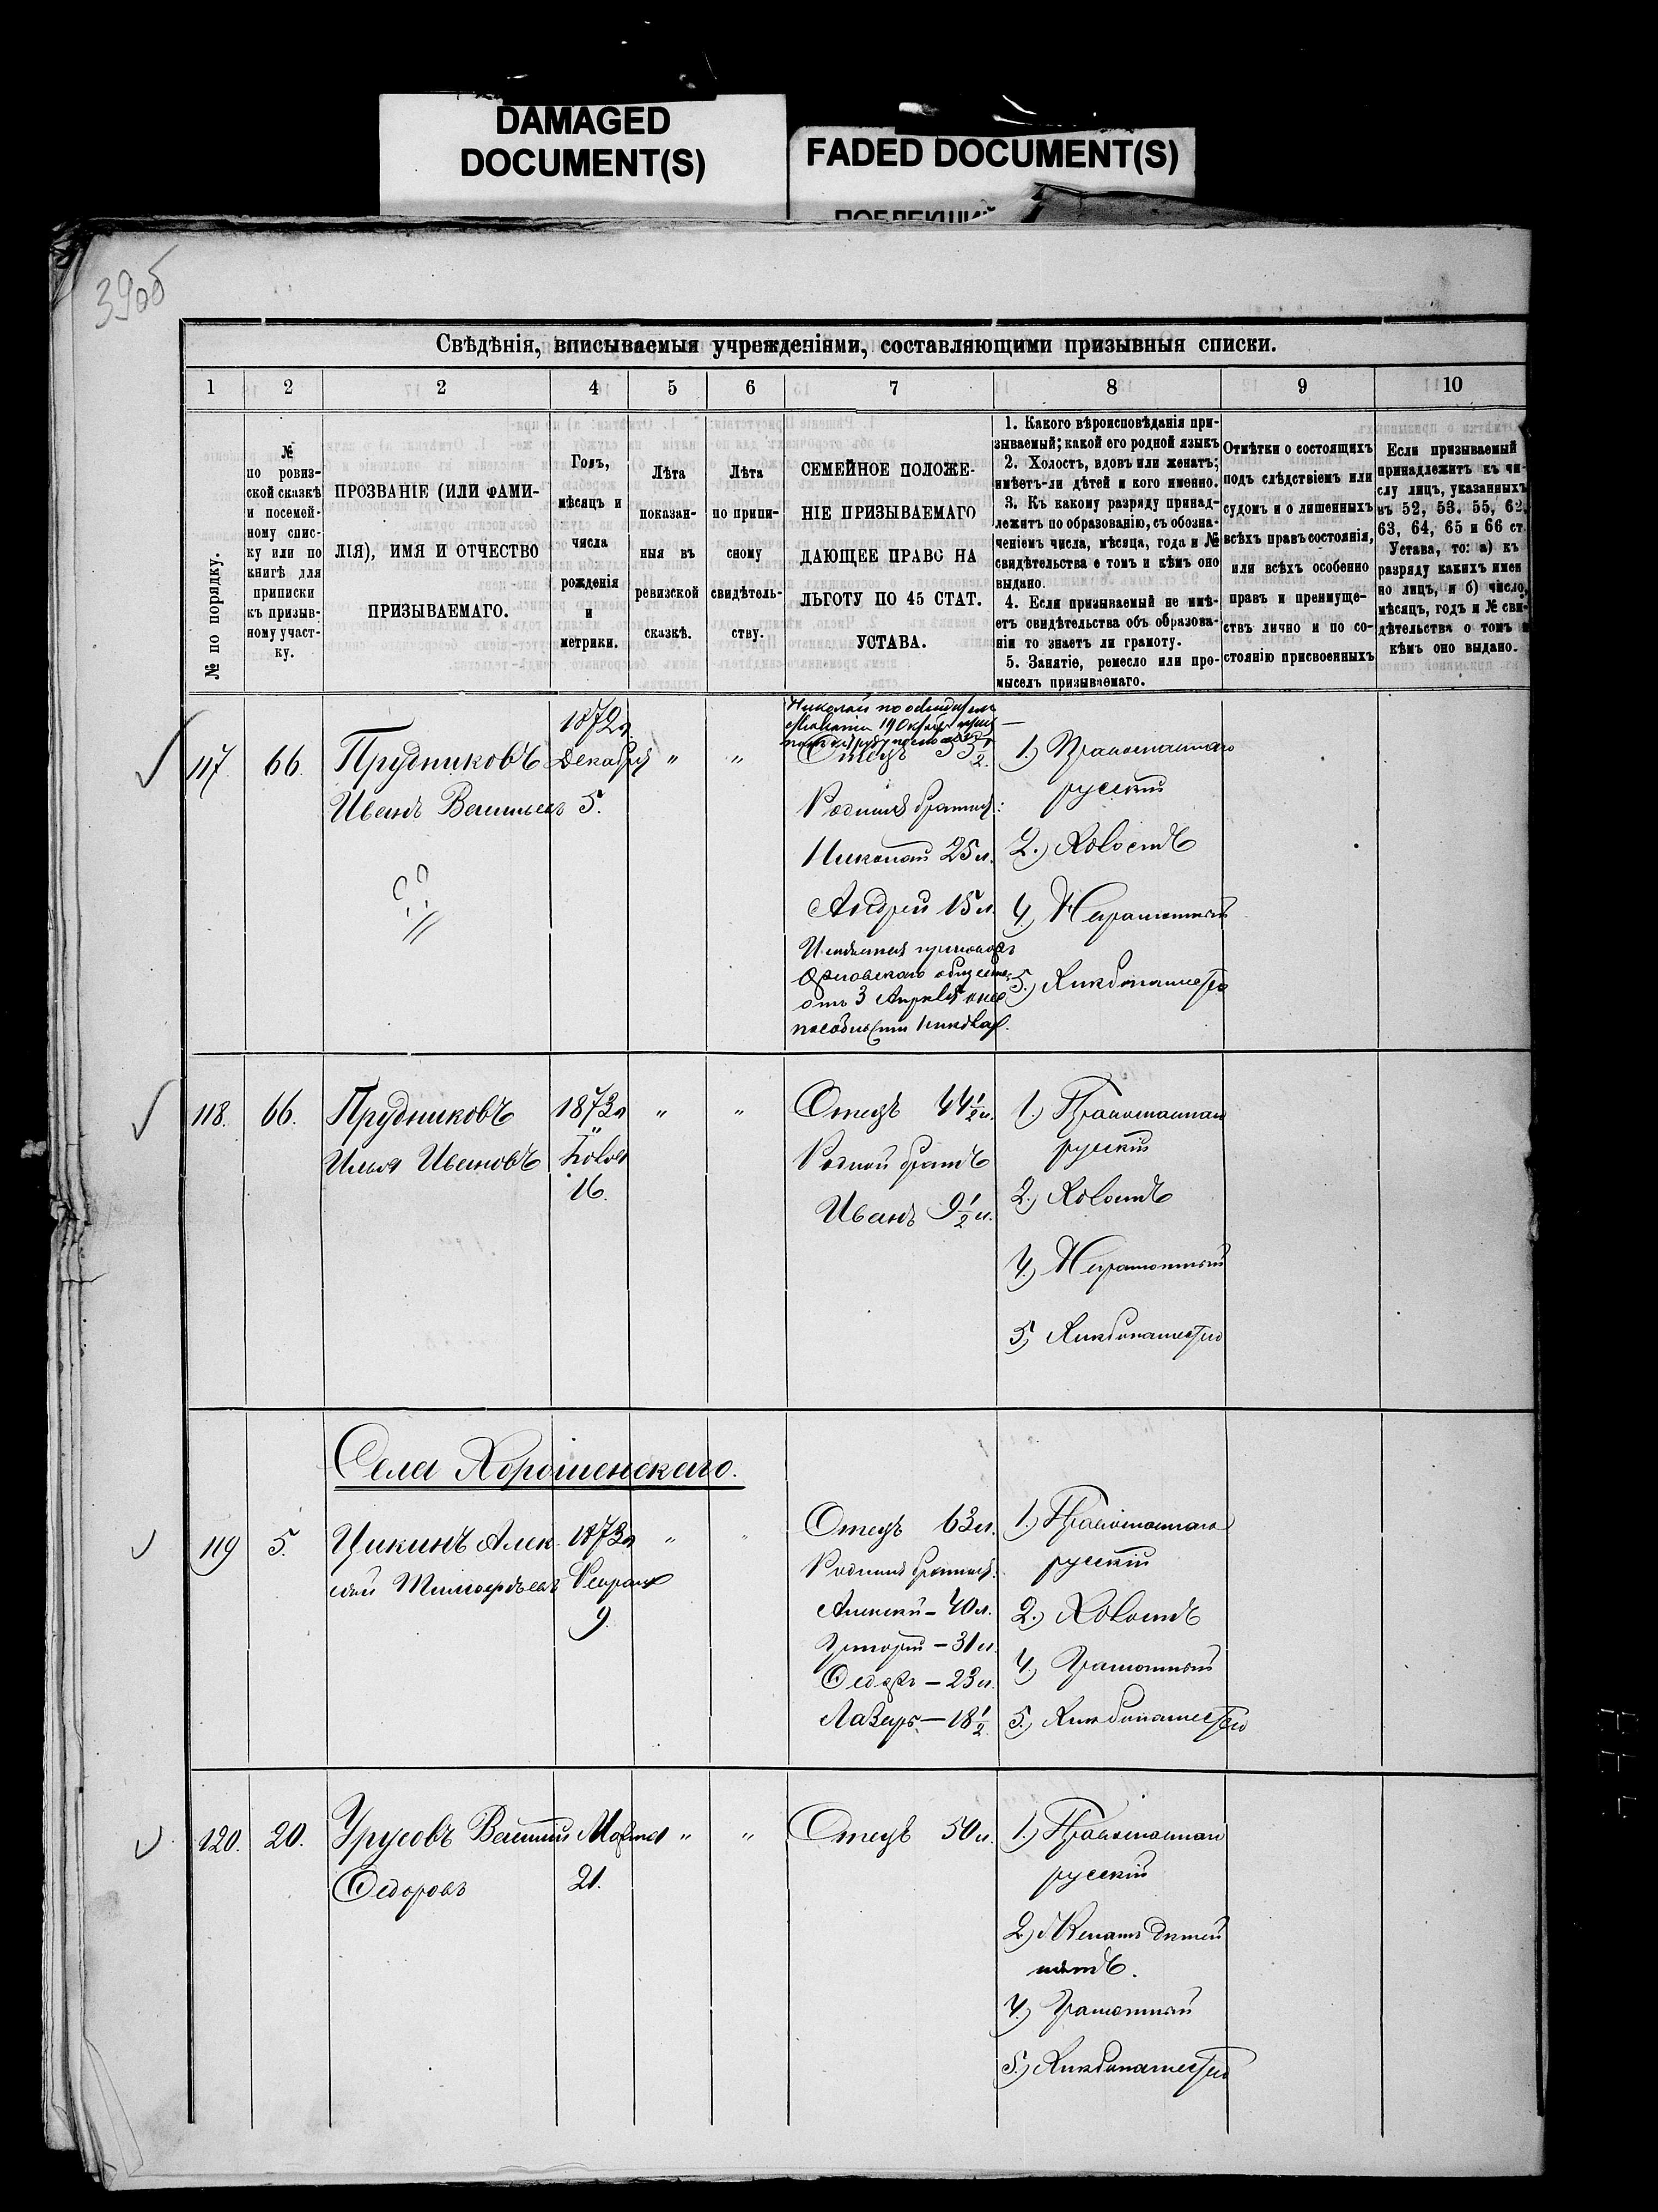 DAMAGED
DOCUMENT(S)
FADED DOCUMENT(S)
39об
Свѣдѣнія, вписываемыя учрежденіями, составляющими призывныя списки.
1 2 2 4 5 6 7 8 9 10
№ по порядку.
№
по ровиз-
ской сказкѣ
и посемей-
ному спис-
ку или по
книгѣ для
приписки
къ призыв-
ному участ-
ку.
ПРОЗВАНІЕ (ИЛИ ФАМИ-
ЛІЯ), ИМЯ И ОТЧЕСТВО
ПРИЗЫВАЕМАГО.
Годъ,
мѣсяцъ и
числа
рожденія
и
метрики.
Лѣта
показан-
ныя въ
ревизской
сказкѣ.
Лѣта
по припи-
сному
свидѣтель-
ству.
СЕМЕЙНОЕ ПОЛОЖЕ-
НІЕ ПРИЗЫВАЕМАГО
ДАЮЩЕЕ ПРАВО НА
ЛЬГОТУ ПО 45 СТАТ.
УСТАВА.
1. Какого вѣроисповѣданія при-
зываемый; какой его родной языкъ
2. Холостъ, вдовъ или женатъ;
имѣетъ-ли дѣтей и кого именно.
3. Къ какому разряду принад-
лежитъ по образованію, съ обозна-
ченіемъ числа, мѣсяца, года и №
свидѣтельства о томъ и кѣмъ оно
выдано.
4. Если призываемый не имѣ-
етъ свидѣтельства объ образова-
ніи то знаетъ ли грамоту.
5. Занятіе, ремесло или про-
мыселъ призываемаго.
Отмѣтки о состоящихъ
подъ слѣдствіемъ или
судомъ и о лишенныхъ
всѣхъ правъ состоянія,
или всѣхъ особенно
правъ и преимуще-
ствъ лично и по со-
стоянію присвоенныхъ
Если призываемый
принадлежитъ къ чи-
слу лицъ, указанныхъ
въ 52, 53, 55, 62,
63, 64, 65 и 66 ст.
Устава, то: а) къ
разряду какихъ имен
но лицъ, и б) число,
мѣсяцъ, годъ и № сви-
дѣтельства о томъ и
кѣмъ оно выдано.
117. 66. Прудниковъ
Иванъ Васильевъ
1872г.
Декабря
5.
" "
Николай по
Отецъ 55 1/2
Родные братья:
Николай 25 л.
Андрей 15 л.
общества
отъ 3 Апрѣля
1.) Православнаго
русскій
2.) Холостъ
4.) Неграмотный
5.) Хлѣбопашество
118. 66. Прудниковъ
Илья Ивановъ
1873г.
Іюля
16.
" "
Отецъ 44 1/2 л.
Родной братъ
Иванъ 9 1/2 л.
1.) Православнаго
русскій
2.) Холостъ
4.) Неграмотный
5) Хлѣбопашество
Села Хорошенскаго.
119 5. Цикинъ Алек
сѣй Тимофѣевъ
1873г.
Февраля
9.
" "
Отецъ 63 л.
Родные братья:
Алексѣй – 40 л.
Григорій – 31 л.
Ѳедоръ – 23 л.
Лазарь – 18 1/2
1.) Православнаго
русскій
2.) Холостъ
4.) Грамотный
5.) Хлѣбопашество
120. 20. Урусовъ Василій
Ѳедоровъ
Марта
21.
" "
Отецъ 50 л.
1.) Православнаго
русскій
2.) Женатъ дѣтей
нѣтъ.
4.) Грамотный
5.) Хлѣбопашество